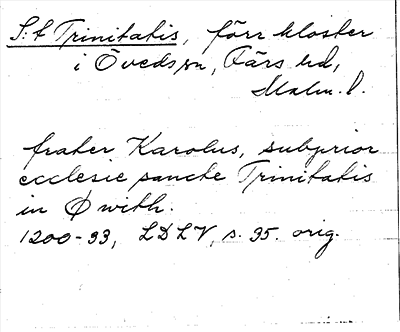 S:t Trinitatis, förr kloster
i Öveds sn, Färs hd,
Malm. l.
frater Karolus, subprior
ecclesie sancte Trinitatis
in Øwith.
1200-33, LDLV, s. 35. orig.